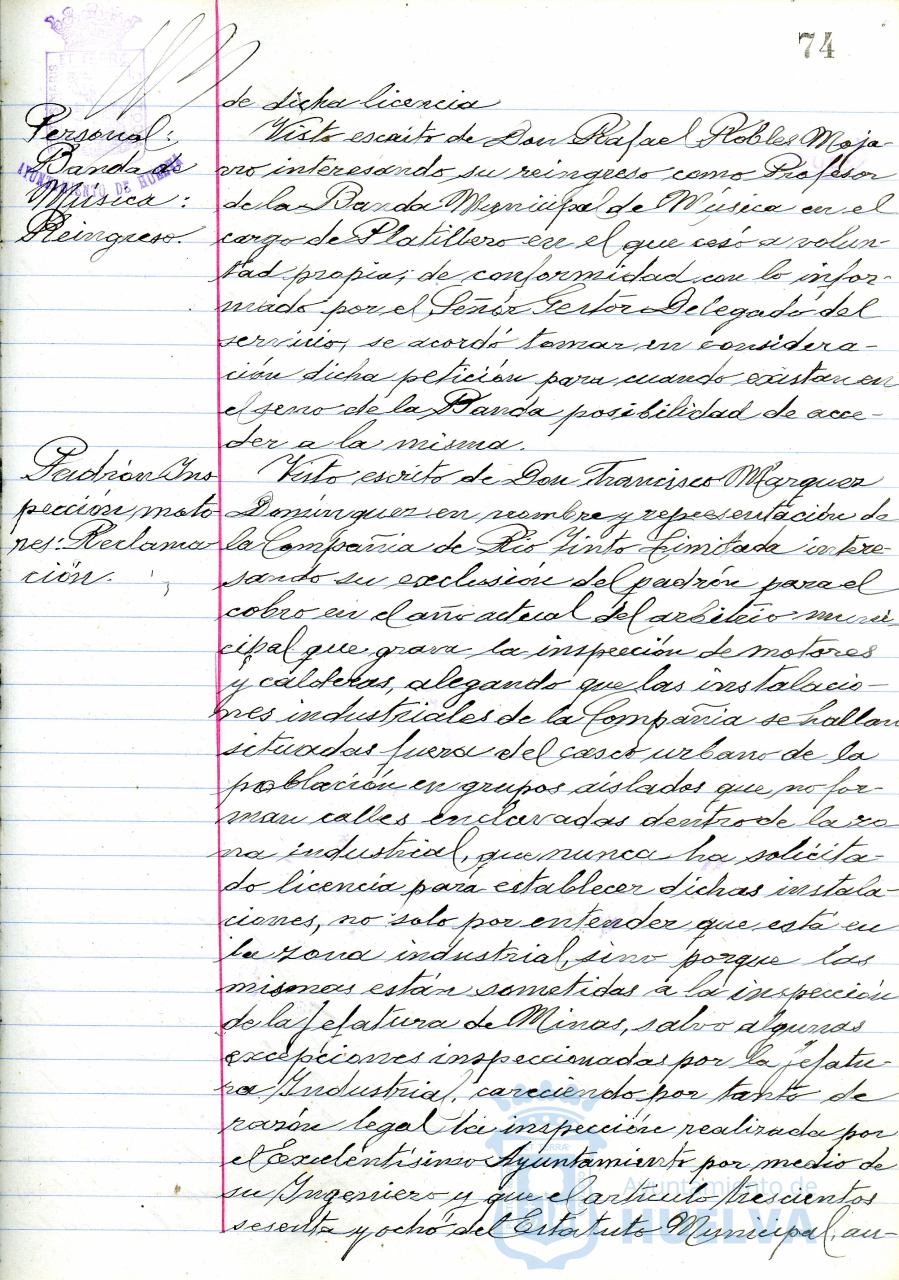 74
de dicha licencia
Personal:
Banda de
Música:
Reingreso.
AYUNTAMIENTO DE HUELVA
Visto escrito de Don Rafael Robles Moja-
rro interesando su reingreso como Profesor
de la Banda Municipal de Música en el
cargo de Platillero en el que cesó a volun-
tad propia; de conformidad con lo infor-
mado por el Señor Gestor Delegado del
servicio, se acordó tomar en considera-
ción dicha petición para cuando existan en
el seno de la Banda posibilidad de acce-
der a la misma.
Padrón Ins
pección moto
res: Reclama
ción.
Visto escrito de Don Francisco Márquez
Domínguez en nombre y representación de
la Compañia de Rio Tinto Limitada intere-
sando su exclusión del padrón para el
cobro en el año actual del arbitrio muni-
cipal que grava la inspección de motores
y calderas, alegando que las instalacio-
nes industriales de la Compañia se hallan
situadas fuera del casco urbano de la
población en grupos aislados que no for-
man calles enclavadas dentro de la zo
na industrial, que nunca ha solicita-
do licencia para establecer dichas instala-
ciones, no solo por entender que está en
la zona industrial, sino porque las
mismas están sometidas a la inspección
de la Jefatura de Minas, salvo algunas
excepciones inspeccionadas por la Jefatu-
ra Industrial, careciendo por tanto de
razón legal la inspección realizada por
el Excelentísimo Ayuntamiento por medio de
su Ingeniero y que el artículo trescientos
sesenta y ocho del Estatuto Municipal, au-
Ayuntamiento de
HUELVA